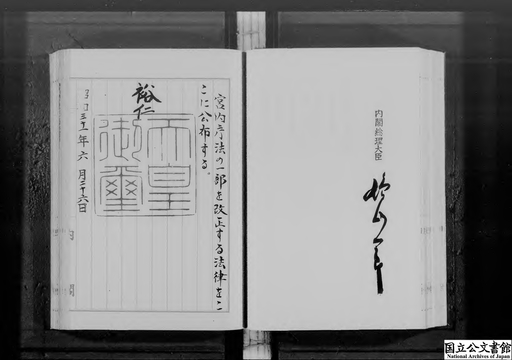 内閣総理大臣
鳩山一郎
宮内庁法の一部を改正する法律をこ
こに公布する。
裕仁
天皇
御璽
昭和三十一年六月二十六日
国立公文書館
National Archives of Japan